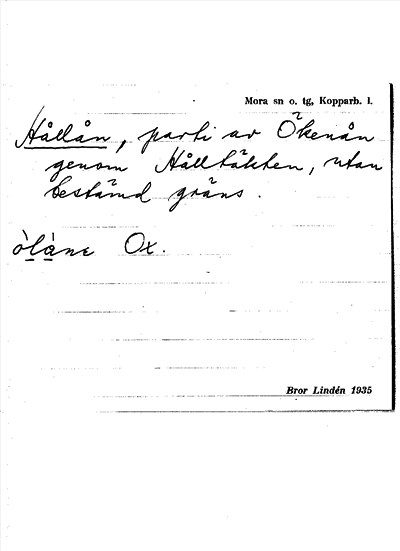 Mora sn o. tg, Kopparb. l.
Hållån, parti av Ökenån
genom Hålltäkten, utan
bestämd gräns.
òlàne Ox.
Bror Lindén 1935